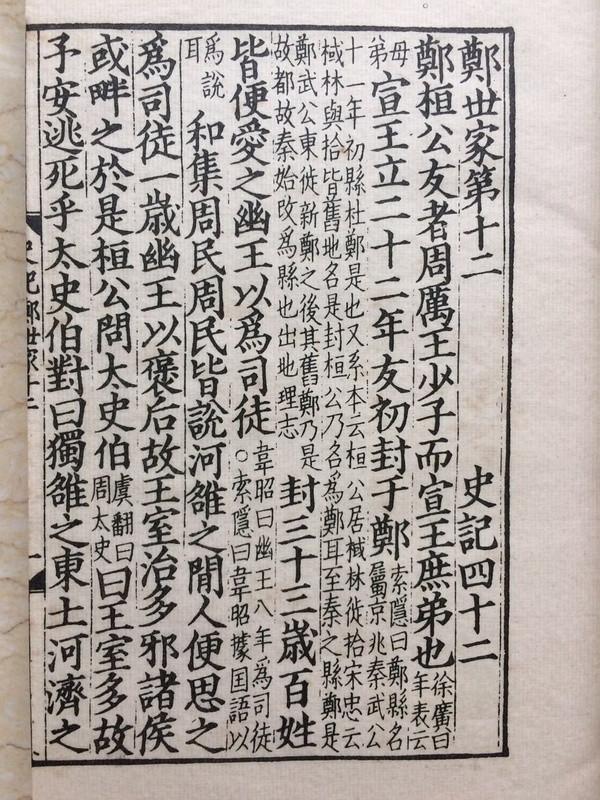 鄭世家第十二 史記四十二
鄭桓公友者周厲王少子而宣王庶弟也徐廣曰年表云
母弟宣王立二十二年友初封于鄭索隱曰鄭縣名屬京兆秦武公
十一年初縣杜鄭是也又系本云桓公居棫林徙拾宋忠云
棫林與拾皆舊地名是封桓公乃名爲鄭耳至秦之縣鄭是
鄭武公東徙新鄭之後其舊鄭乃是故都故秦始改爲縣也出地理志封三十三歲百姓
皆便愛之幽王以爲司徒韋昭曰幽王八年爲司徒○索隱曰韋昭據国語以
爲說耳和集周民周民皆說河雒之閒人便思之
爲司徒一歲幽王以褒后故王室治多邪諸侯
或畔之於是桓公問太史伯虞翻曰周太史曰王室多故
予安逃死乎太史伯對曰獨雒之東土河濟之